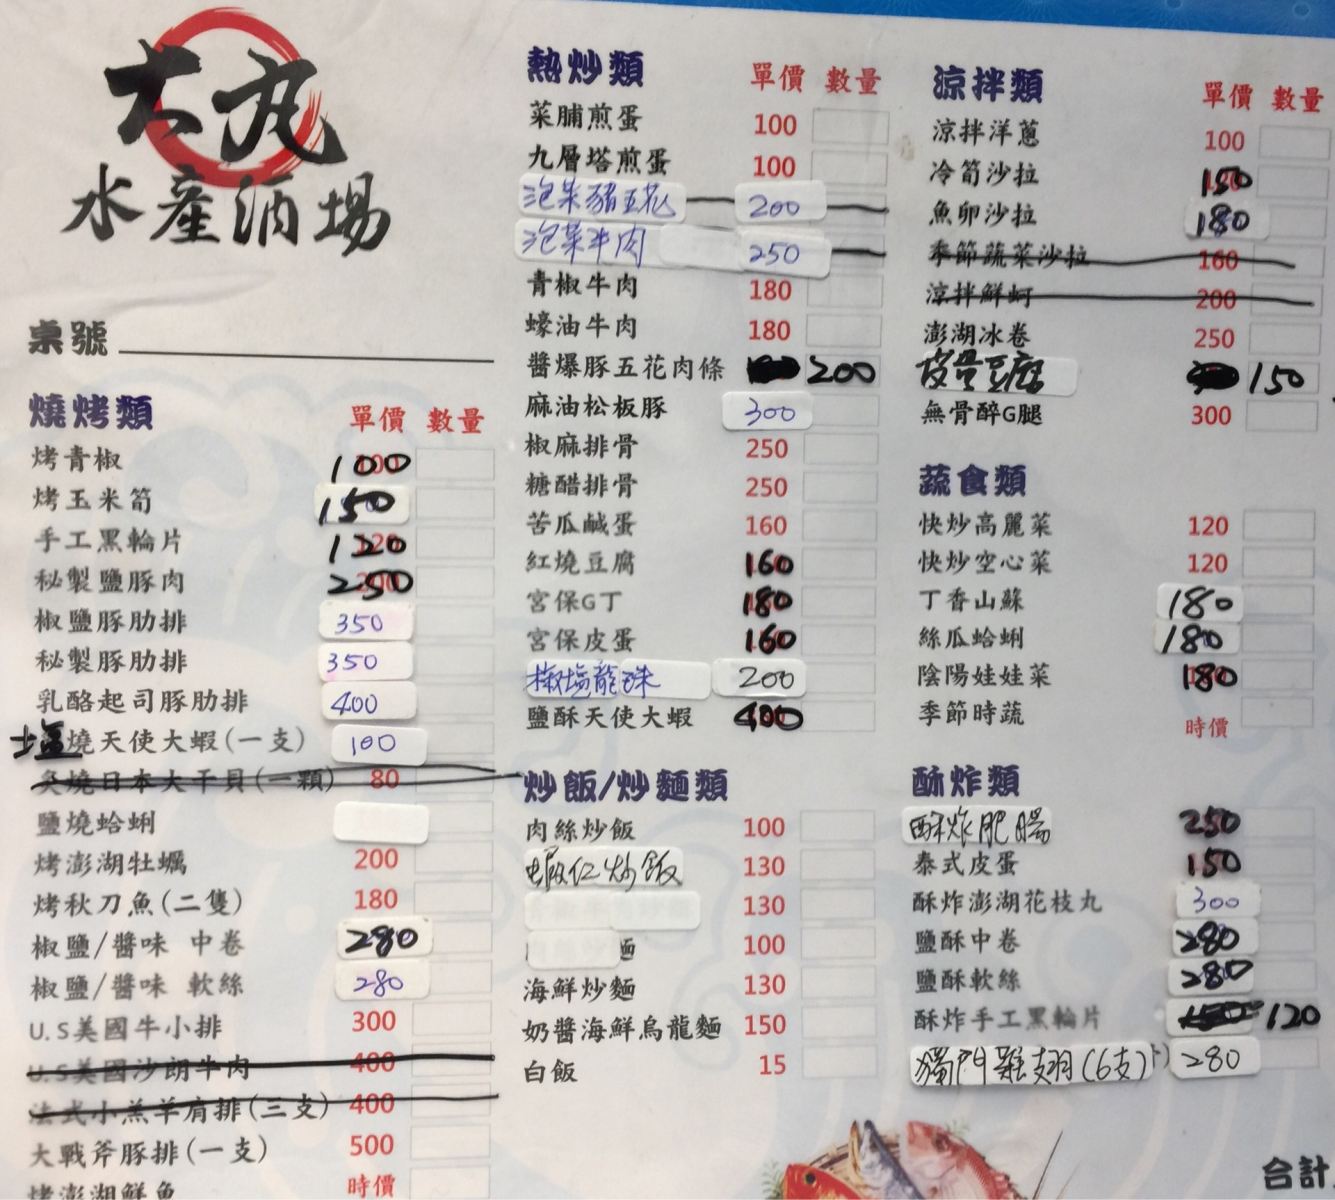 大丸
水產酒場
桌號
燒烤類 單價 數量
烤青椒 100
烤玉米筍 150
手工黑輪片 120
秘製鹽豚肉 250
椒鹽豚肋排 350
秘製豚肋排 350
乳酪起司豚肋排 400
塩燒天使大蝦(一支) 100
炙燒日本大干貝(一顆) 80
鹽燒蛤蜊
烤澎湖牡蠣 200
烤秋刀魚(二隻) 180
椒鹽/醬味 中卷 280
椒鹽/醬味 軟絲 280
U.S美國牛小排 300
U.S美國沙朗牛肉 400
法式小羔羊肩排(三支) 400
大戰斧豚排(一支) 500
烤澎湖鮮魚 時價
熱炒類 單價 數量
菜脯煎蛋 100
九層塔煎蛋 100
泡菜豬五花 200
泡菜牛肉 250
青椒牛肉 180
蠔油牛肉 180
醬爆豚五花肉條 200
麻油松板豚 300
椒麻排骨 250
糖醋排骨 250
苦瓜鹹蛋 160
紅燒豆腐 160
宮保G丁 180
宮保皮蛋 160
椒塩龍珠 200
鹽酥天使大蝦 400
炒飯/炒麵類
肉絲炒飯 100
蝦仁炒飯 130
130
麵 100
海鮮炒麵 130
奶醬海鮮烏龍麵 150
白飯 15
涼拌類 單價 數量
涼拌洋蔥 100
冷筍沙拉 150
魚卵沙拉 180
季節蔬菜沙拉 160
涼拌鮮蚵 200
澎湖冰卷 250
皮蛋豆腐 150
無骨醉G腿 300
蔬食類
快炒高麗菜 120
快炒空心菜 120
丁香山蘇 180
絲瓜蛤蜊 180
陰陽娃娃菜 180
季節時蔬 時價
酥炸類
酥炸肥腸 250
泰式皮蛋 150
酥炸澎湖花枝丸 300
鹽酥中卷 280
鹽酥軟絲 280
酥炸手工黑輪片 120
獨門雞翅(6支) 280
合計